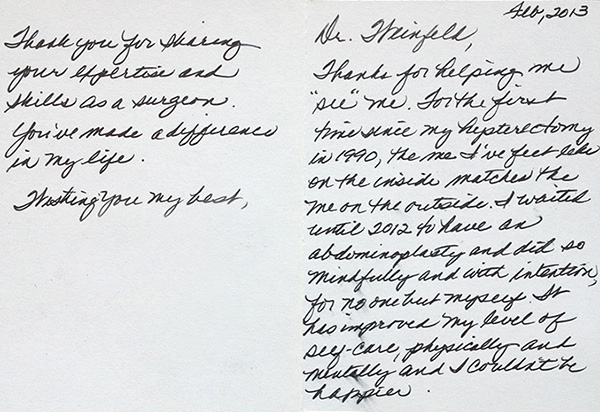 Feb, 2013
Dr. Weinfeld,
Thanks for helping me
"see" me. For the first
time since my hysterectomy
in 1990, the me I've felt like
on the inside matches the
me on the outside. I waited
until 2012 to have an
abdominoplasty and did so
mindfully and with intention,
for no one but myself. It
has improved my level of
self-care, physically and
mentally and I couldn't be
happier.
Thank you for sharing
your expertise and
skills as a surgeon.
You've made a difference
in my life.
Wishing you my best,